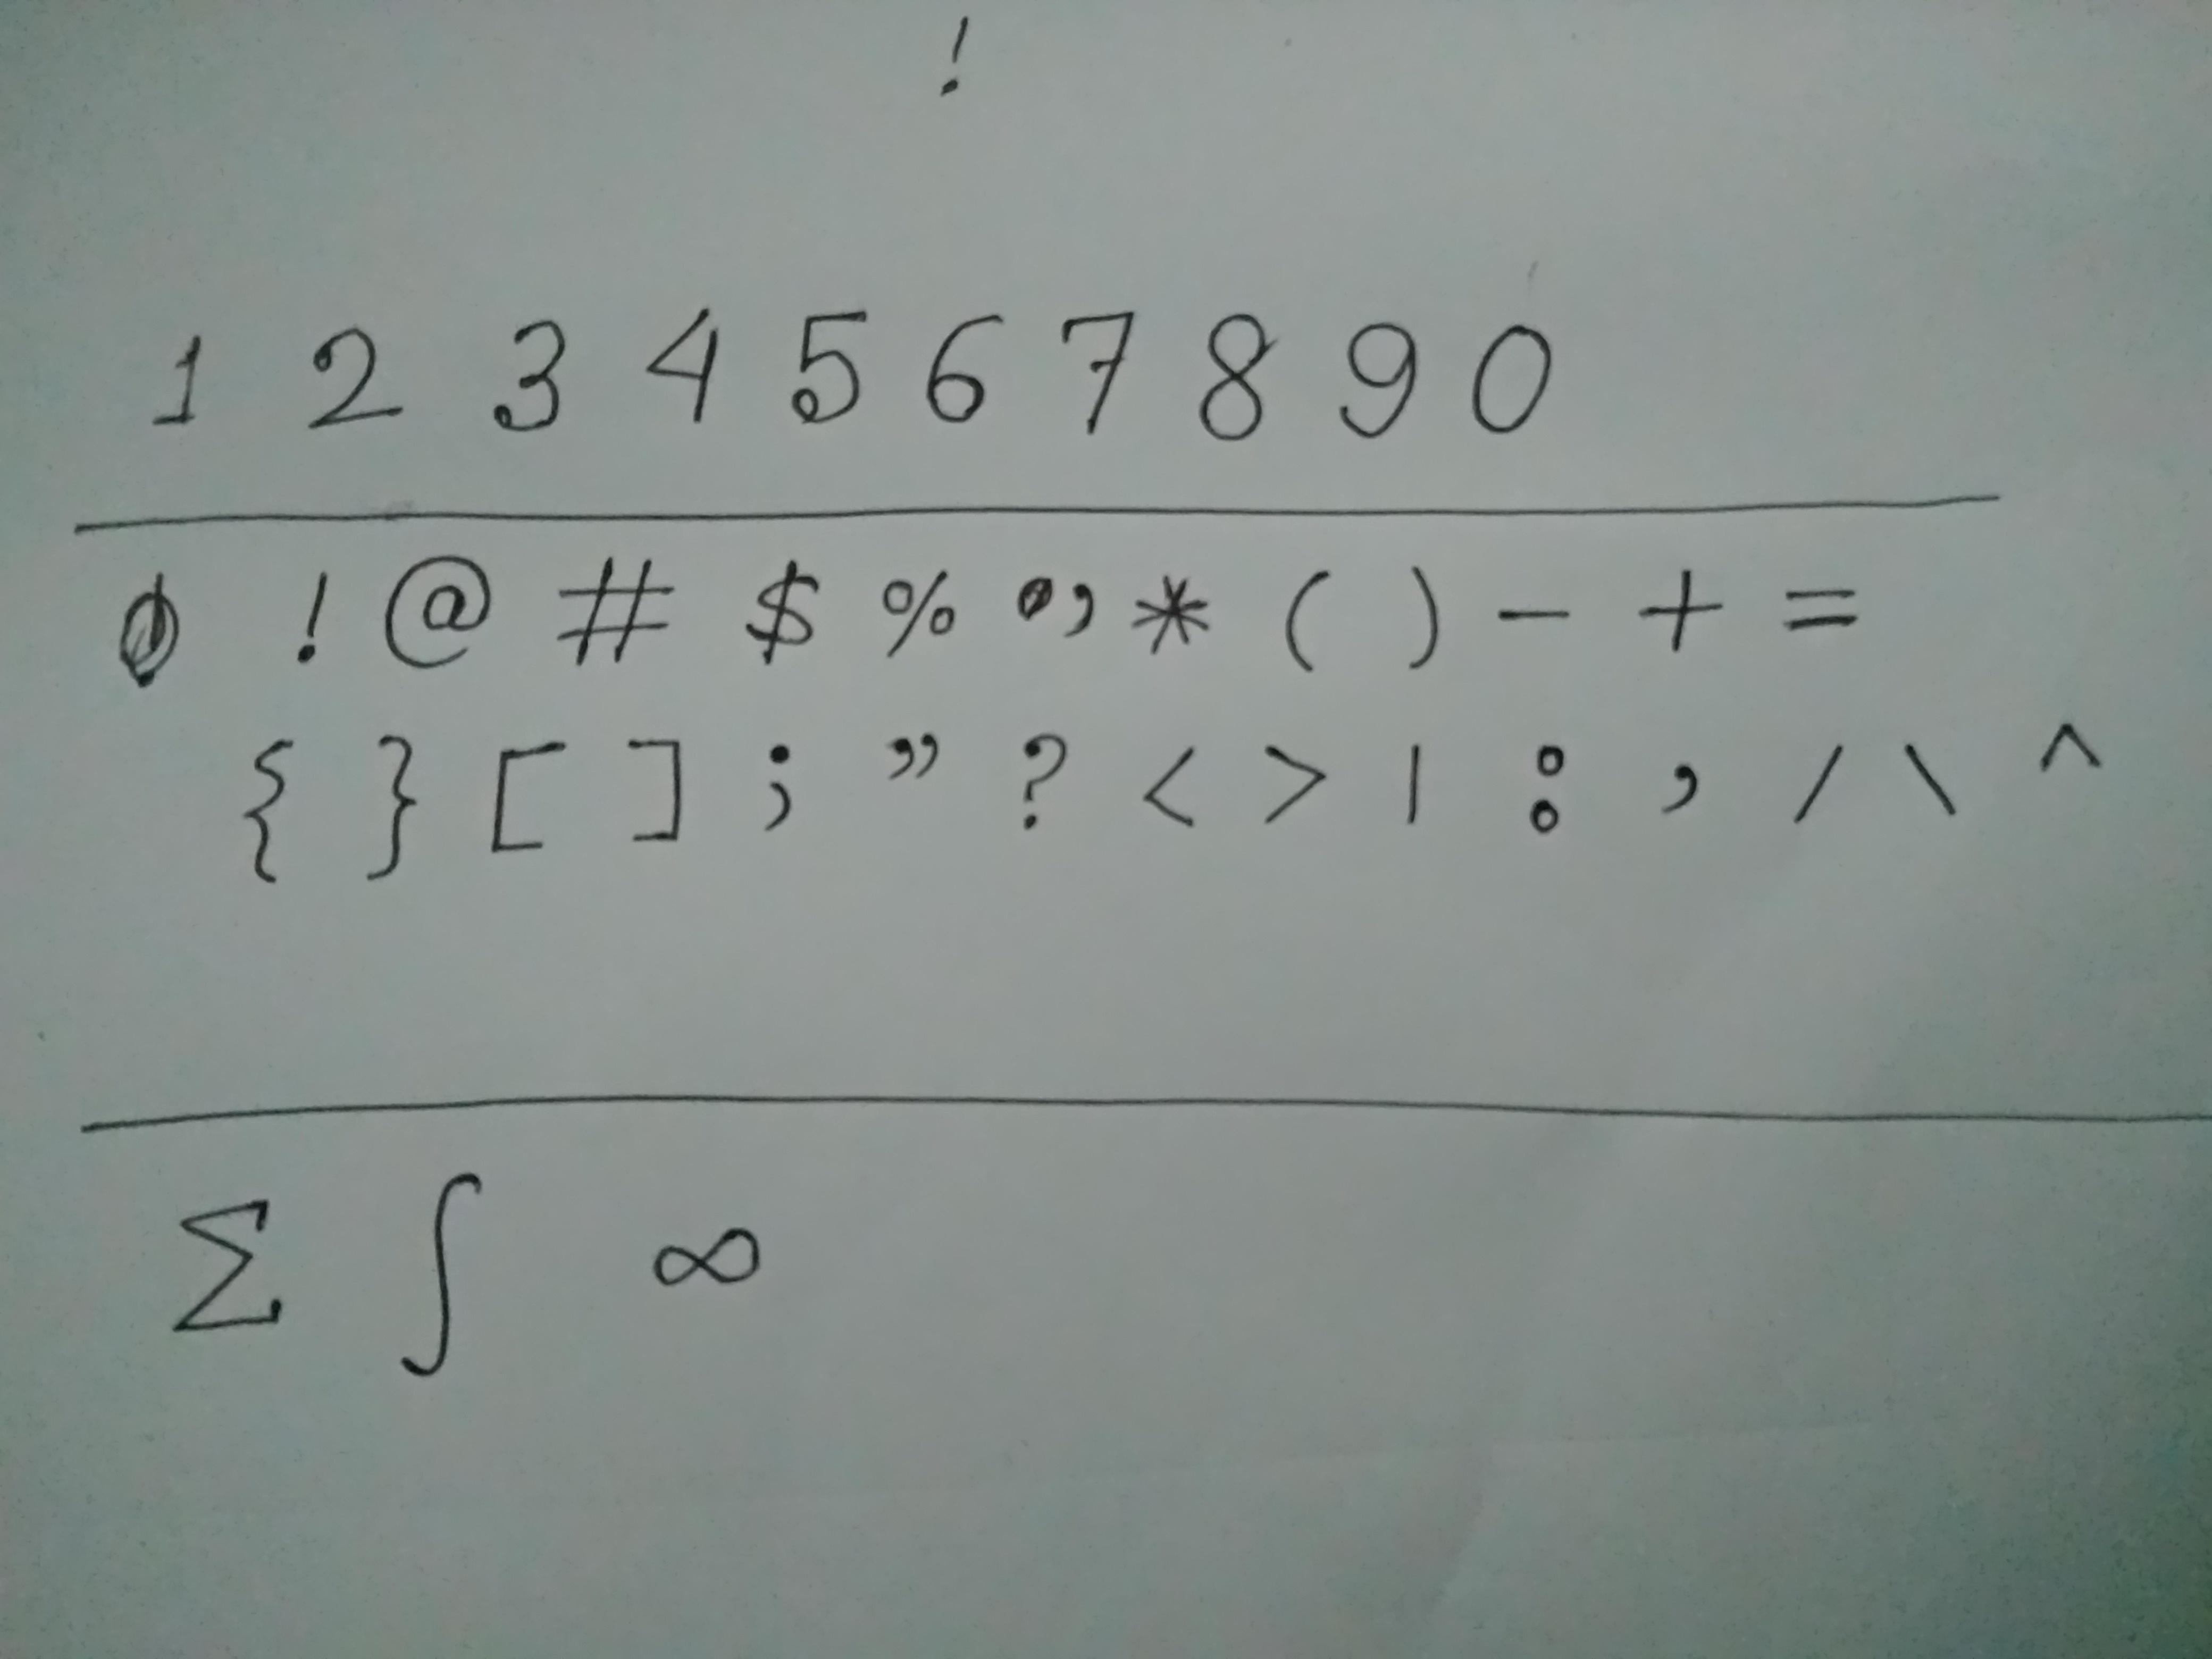 !
1 2 3 4 5 6 7 8 9 0
! @ # $ % , * ( ) - + =
{ } [ ] ; ” ? < > | : , / \ ^
Σ ∫ ∞